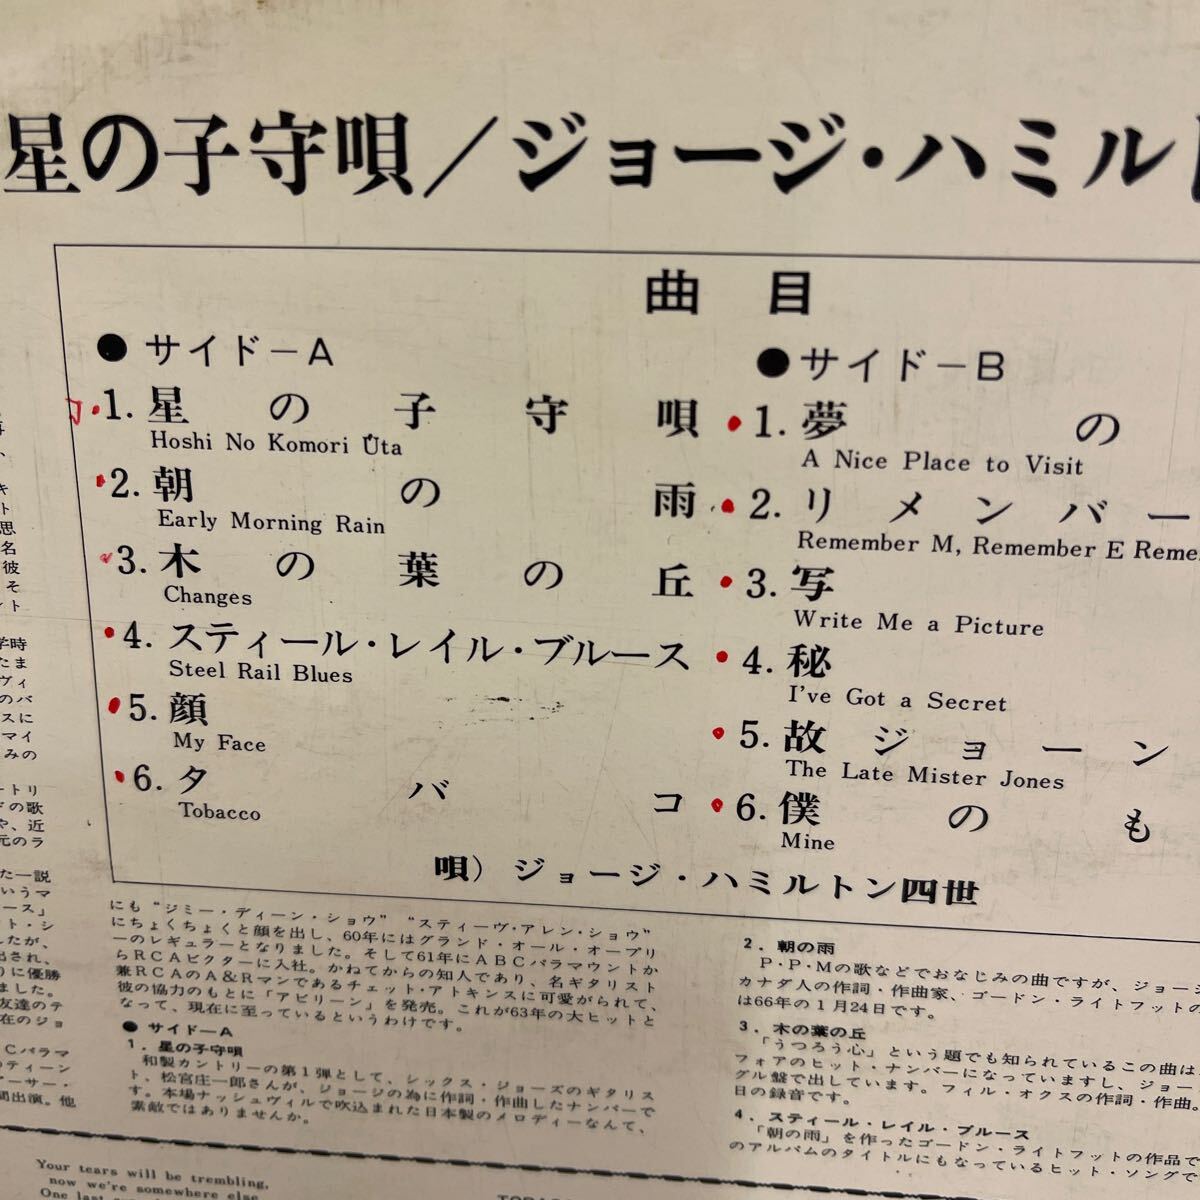 星の子守唄／ジョージ・ハミル
曲目
●サイド－A
1. 星の子守唄
Hoshi No Komori Uta
2. 朝の雨
Early Morning Rain
3. 木の葉の丘
Changes
4. スティール・レイル・ブルース
Steel Rail Blues
5. 顔
My Face
6. タバコ
Tobacco
●サイド－B
1. 夢の
A Nice Place to Visit
2. リメンバー
Remember M, Remember E Reme
3. 写
Write Me a Picture
4. 秘
I've Got a Secret
5. 故ジョーン
The Late Mister Jones
6. 僕のも
Mine
唄）ジョージ・ハミルトン四世
キ
ト
思
名
彼
そ
ント
学時
たま
ヴィ
のバ
スに
マイ
みの
ートリ
ドの歌
や、近
元のラ
た一説
いうマ
ース」
ト・シ
したが、
出され、
りに優勝
ました。
友達のテ
在のジョ
Cパラマ
のティーン
アーサー・
間出演。他
にも“ジミー・ディーン・ショウ”“スティーヴ・アレン・ショウ”
にちょくちょくと顔を出し、60年にはグランド・オール・オープリ
ーのレギュラーとなりました。そして61年にABCパラマウントか
らRCAビクターに入社。かねてからの知人であり、名ギタリスト
兼RCAのA&Rマンであるチェット・アトキンスに可愛がられて、
彼の協力のもとに「アビリーン」を発売。これが63年の大ヒットと
なって、現在に至っているというわけです。
●サイド－A
1．星の子守唄
和製カントリーの第1弾として、レックス・ジョーズのギタリス
ト、松宮庄一郎さんが、ジョージの為に作詞・作曲したナンバーで
す。本場ナッシュヴィルで吹込まれた日本製のメロディーなんて、
素敵ではありませんか。
2．朝の雨
P・P・Mの歌などでおなじみの曲ですが、ジョー
カナダ人の作詞・作曲家、ゴードン・ライトフットの
は66年の1月24日です。
3．木の葉の丘
「うつろう心」という題でも知られているこの曲は
フォアのヒット・ナンバーになっていますし、ジョー
グル盤で出しています。フィル・オクスの作詞・作曲。
日の録音です。
4．スティール・レイル・ブルース
「朝の雨」を作ったゴードン・ライトフットの作品で
のアルバムのタイトルにもなっているヒット・ソングで
Your tears will be trembling,
now we're somewhere else
One last